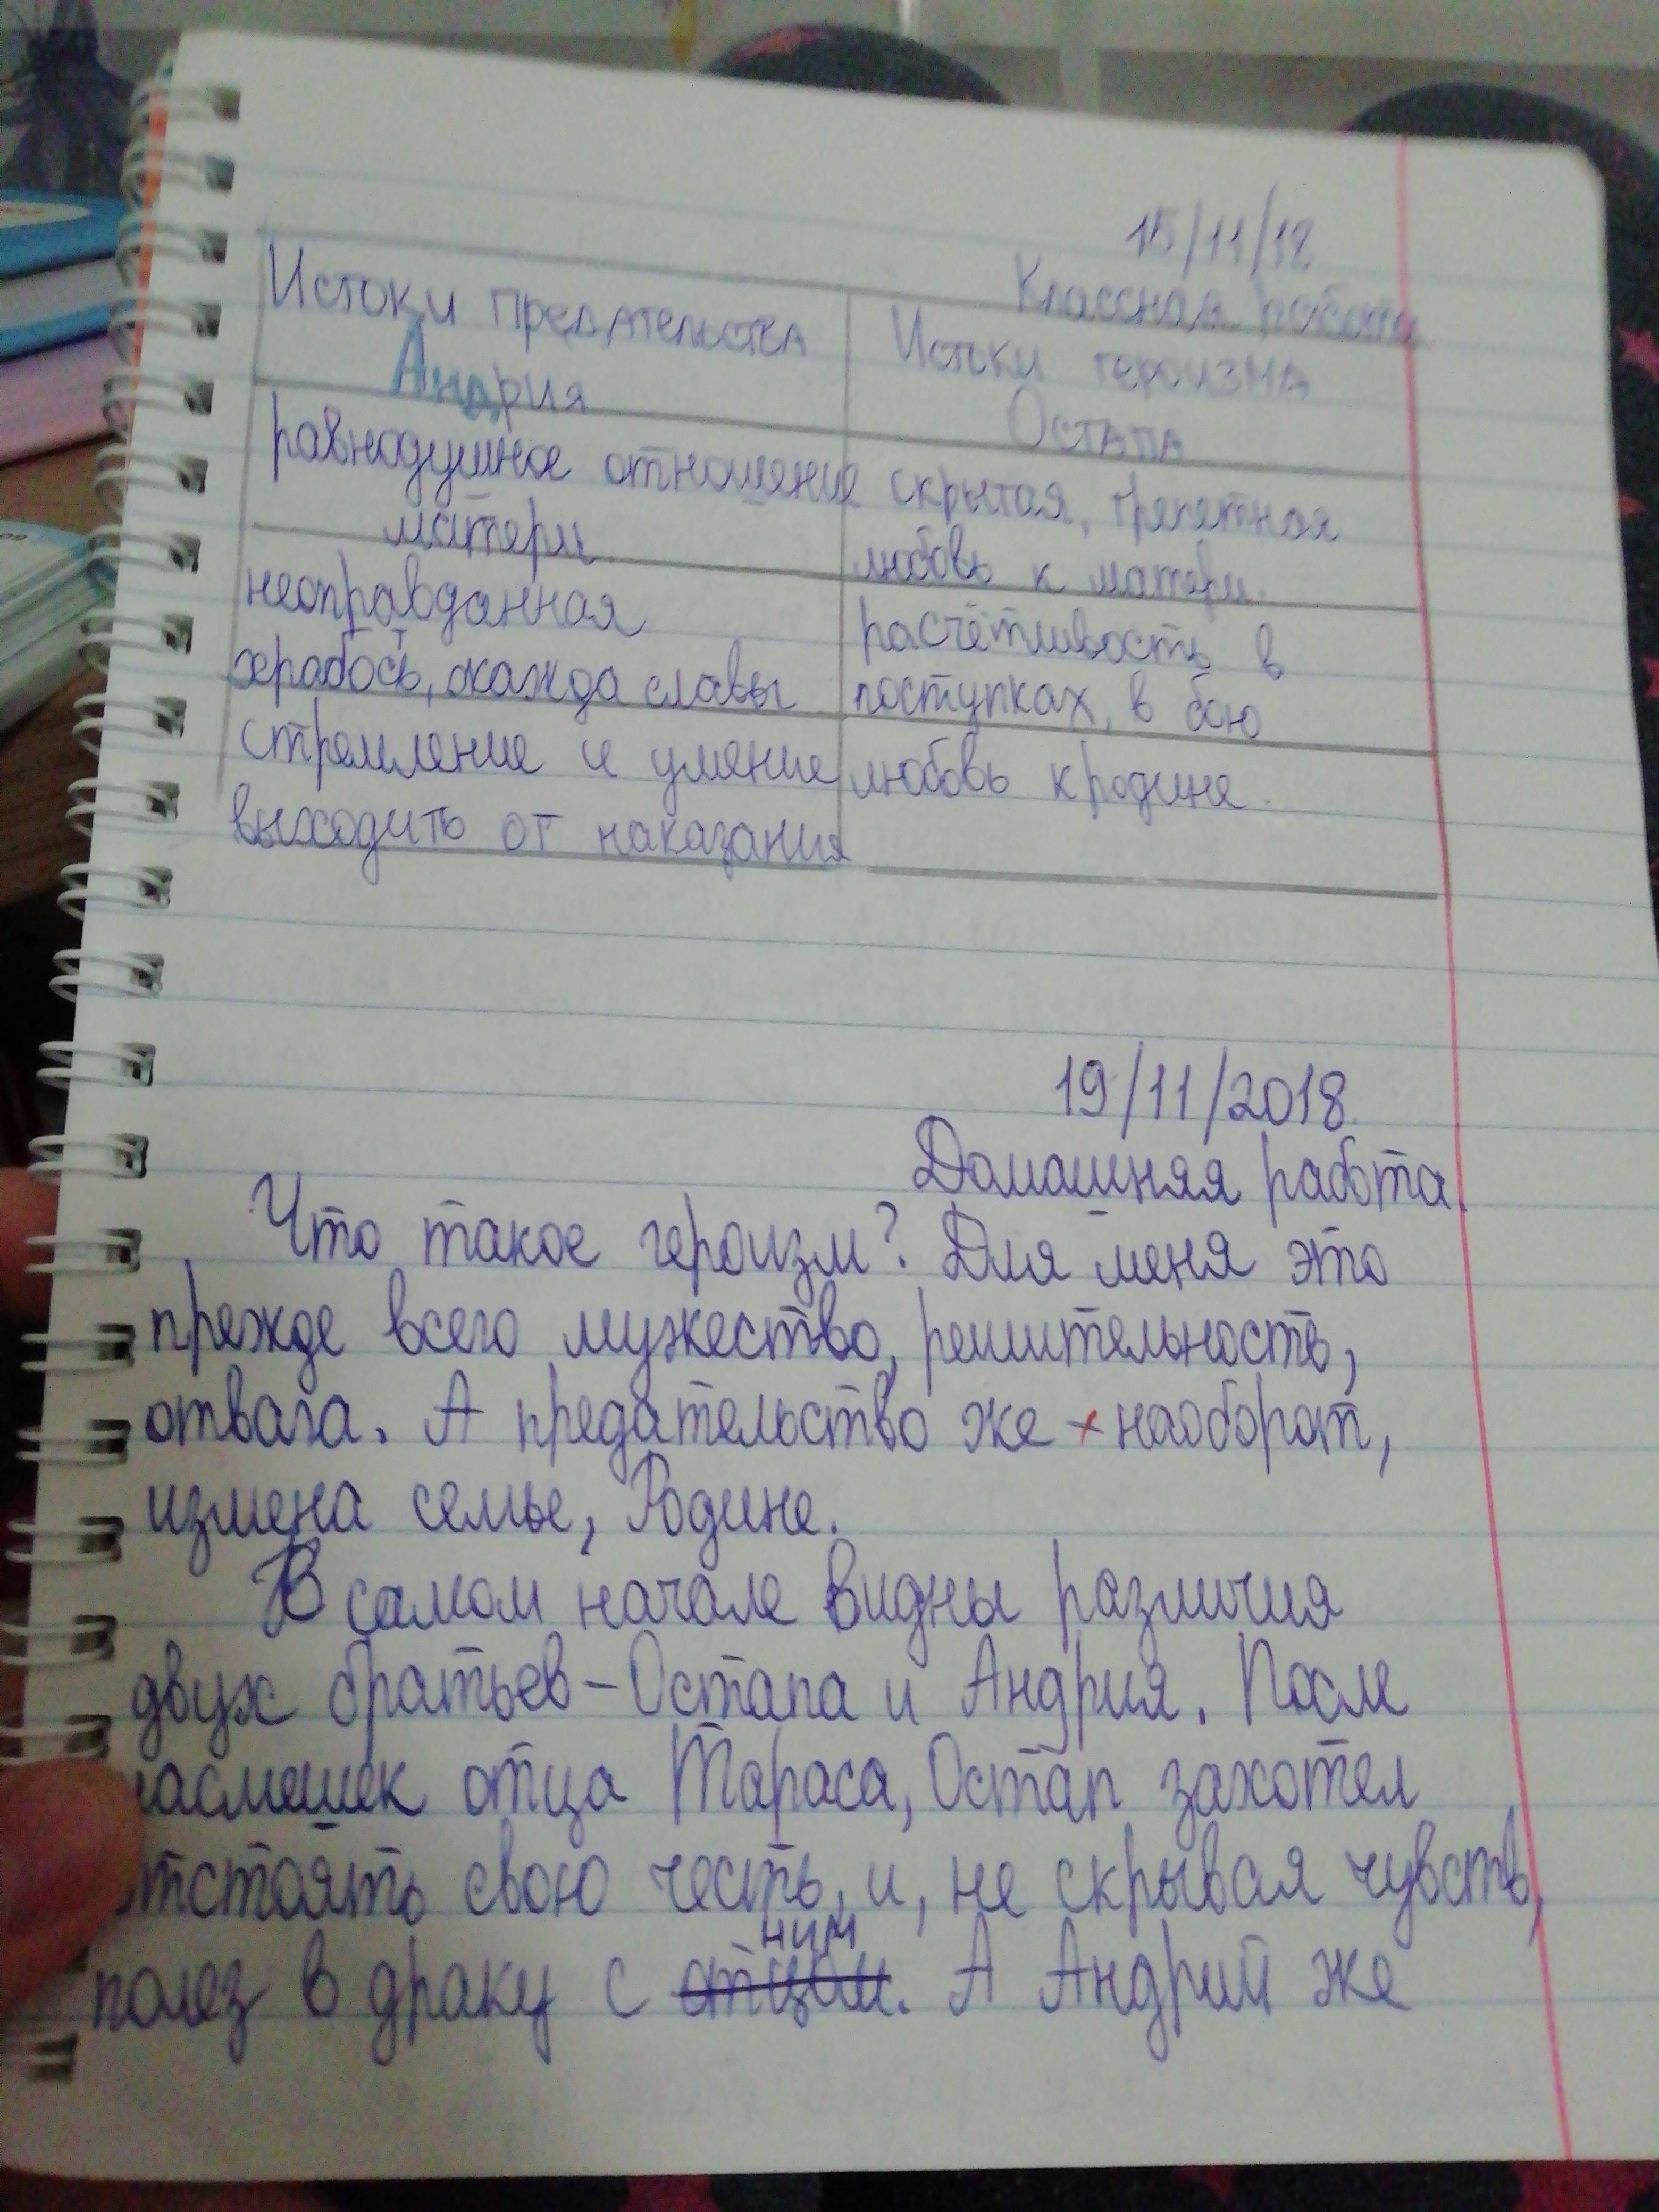 15/11/18
Классная работа
Истоки предательства Андрия
Истоки героизма Остапа
равнодушное отношение матери.
скрытая, трепетная любовь к матери.
неоправданная
храбость, жажда славы
расчётливость в
поступках, в бою
стремление и умение
выходить от наказания
любовь к родине.
19/11/2018
Домашняя работа.
Что такое героизм? Для меня это
прежде всего мужество, решительность,
отвага. А предательство же наоборот,
измена семье, Родине.
В самом начале видны различия
двух братьев – Остапа и Андрия. После
насмешек отца Тараса, Остап захотел
отстоять свою честь, и, не скрывая чувств,
полез в драку с отцом ним. А Андрий же